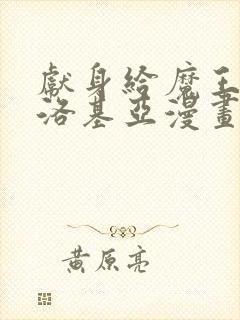 獻身給魔王伊
洛基亞漫畫
黃原亮